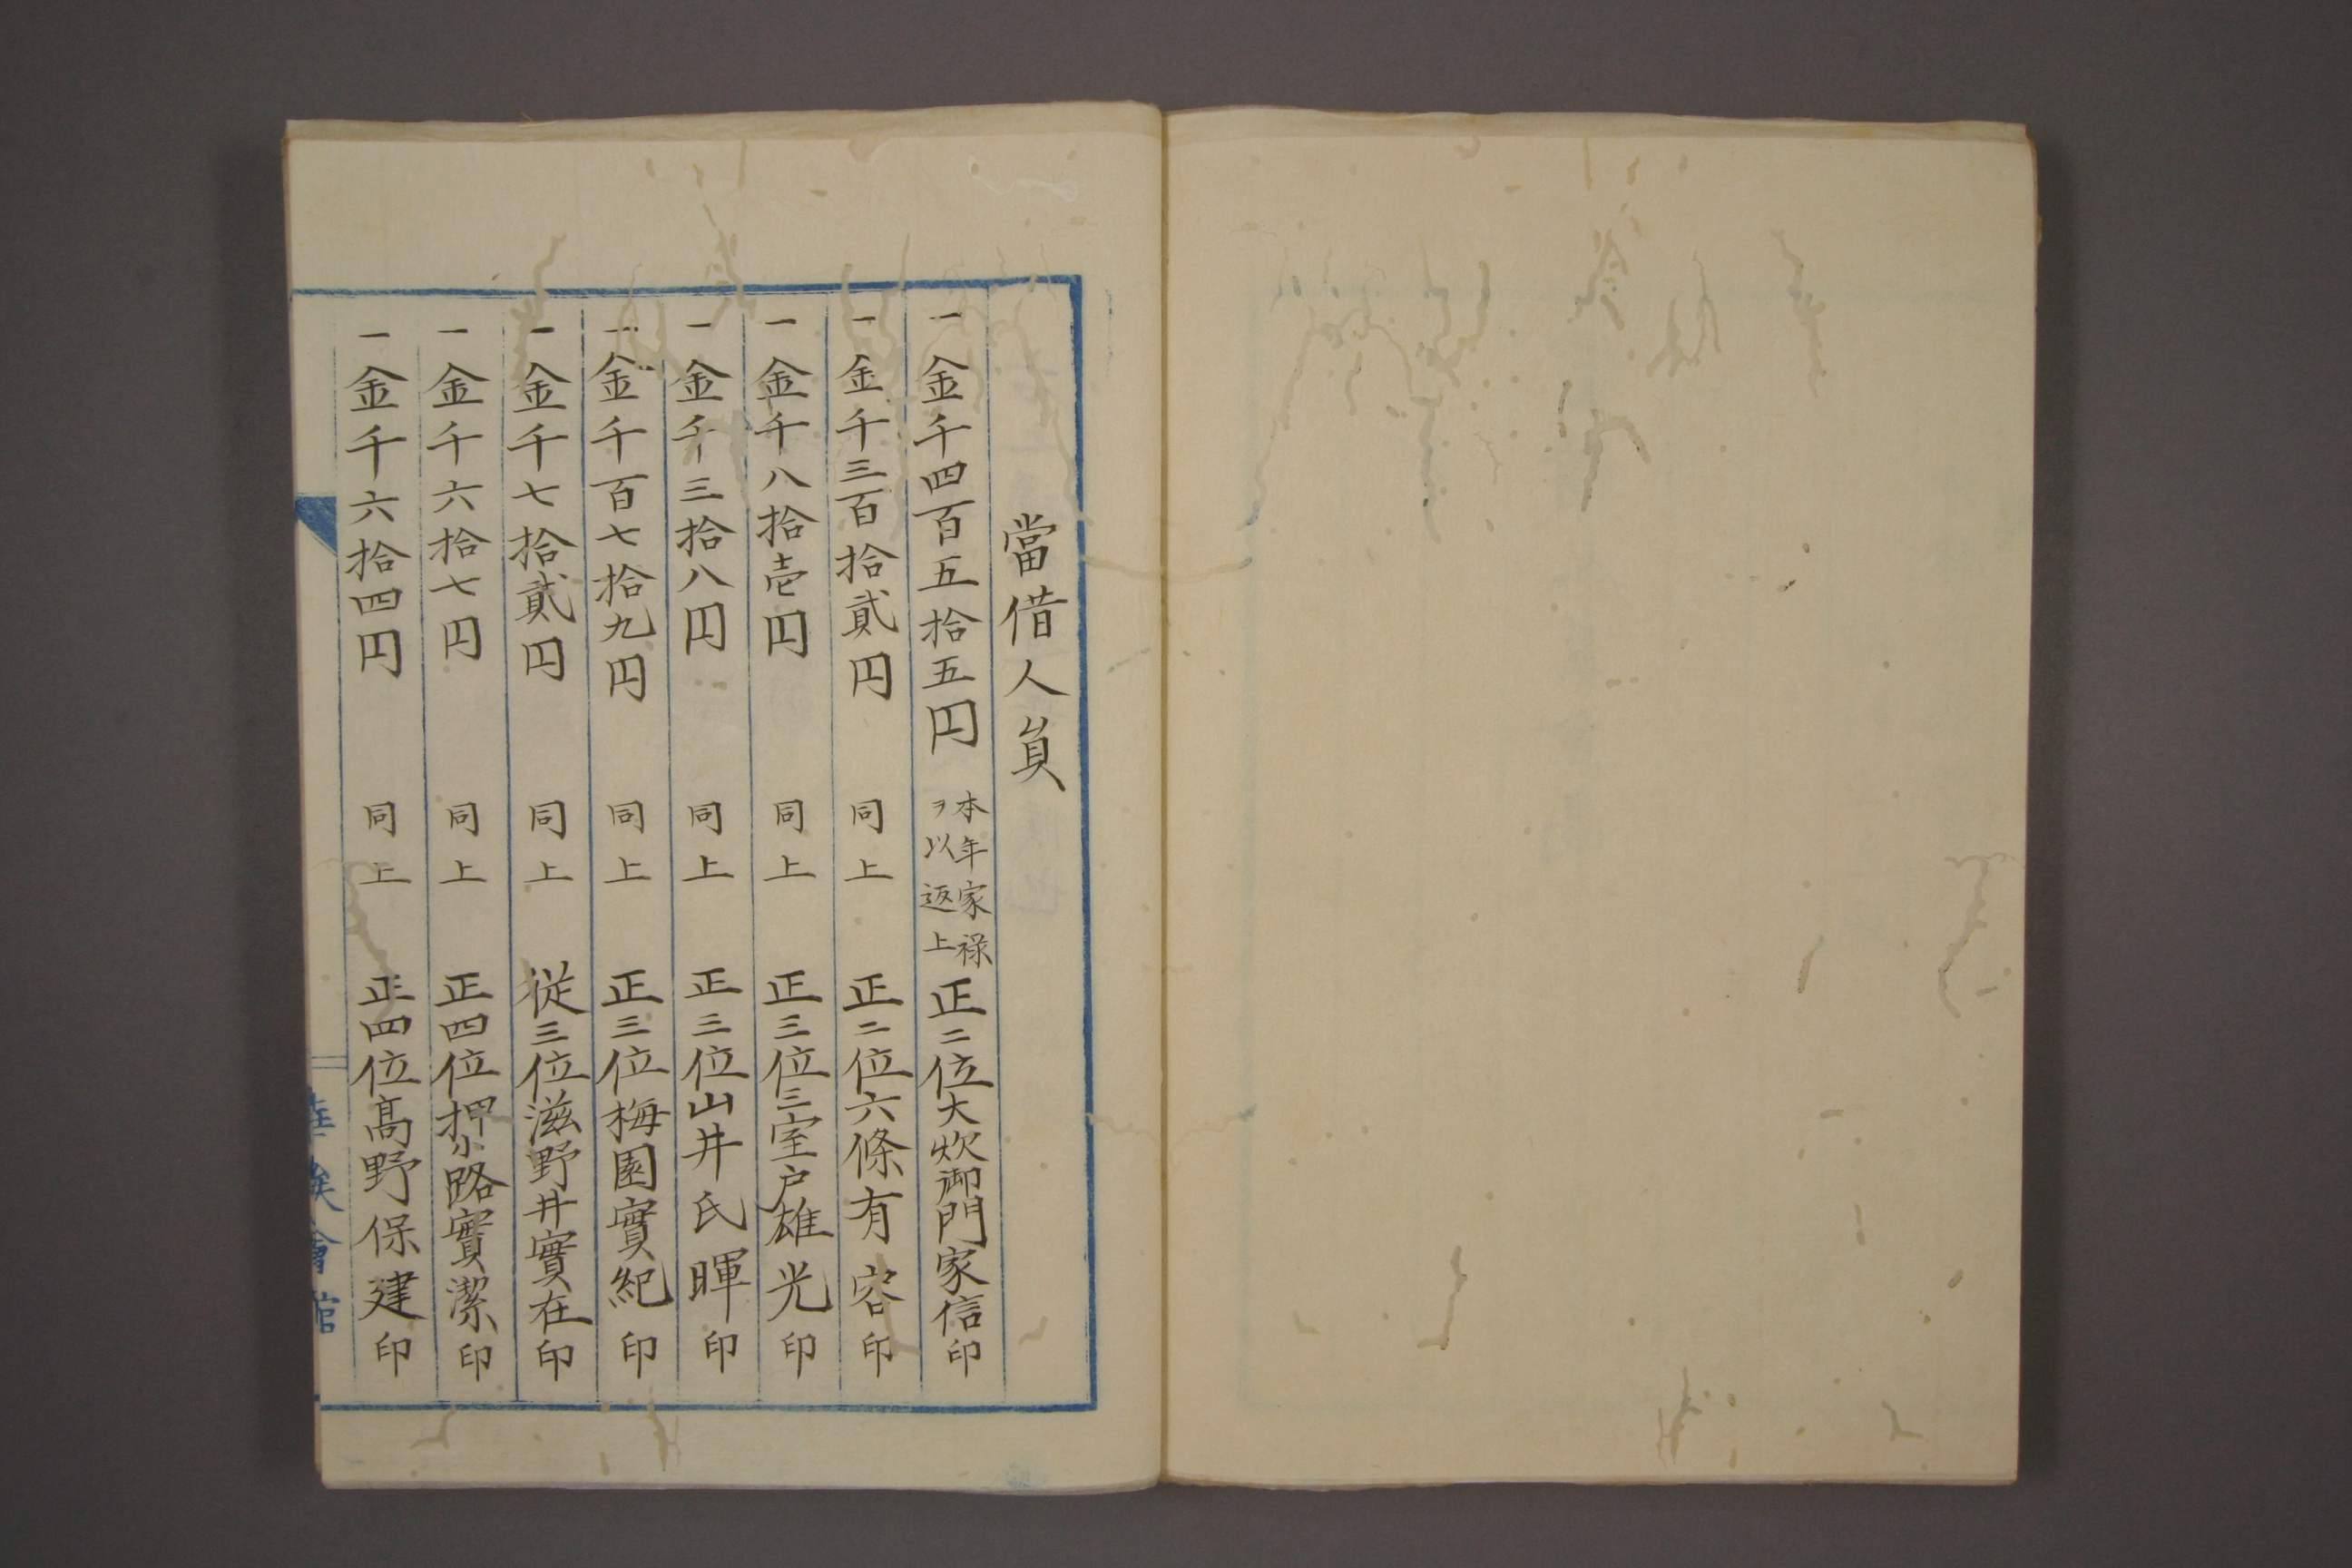 當借人員
一金千四百五拾五円 本年家禄ヲ以返上 正二位大炊御門家信印
一金千三百拾貳円 同上 正二位六條有容印
一金千八拾壱円 同上 正三位三室戸雄光印
一金千三拾八円 同上 正三位山井氏暉印
一金千百七拾九円 同上 正三位梅園實紀印
一金千七拾貳円 同上 従三位滋野井實在印
一金千六拾七円 同上 正四位押小路實潔印
一金千六拾四円 同上 正四位髙野保建印
華族會館